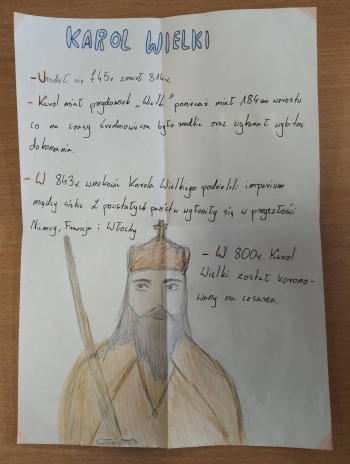 KAROL WIELKI
- Urodził się 745r zmarł 814r.
- Karol miał przydomek „Wielki” ponieważ miał 184cm wzrostu
co na czasy średniowiecza było rzadkie oraz wykonał wybitne
dokonania.
- W 843r. wnukowie Karola Wielkiego podzielili imperium
między siebie. Z powstałych państw wyłoniły się w przyszłości
Niemcy, Francja i Włochy.
- W 800r. Karol
Wielki został korono-
wany na cesarza.